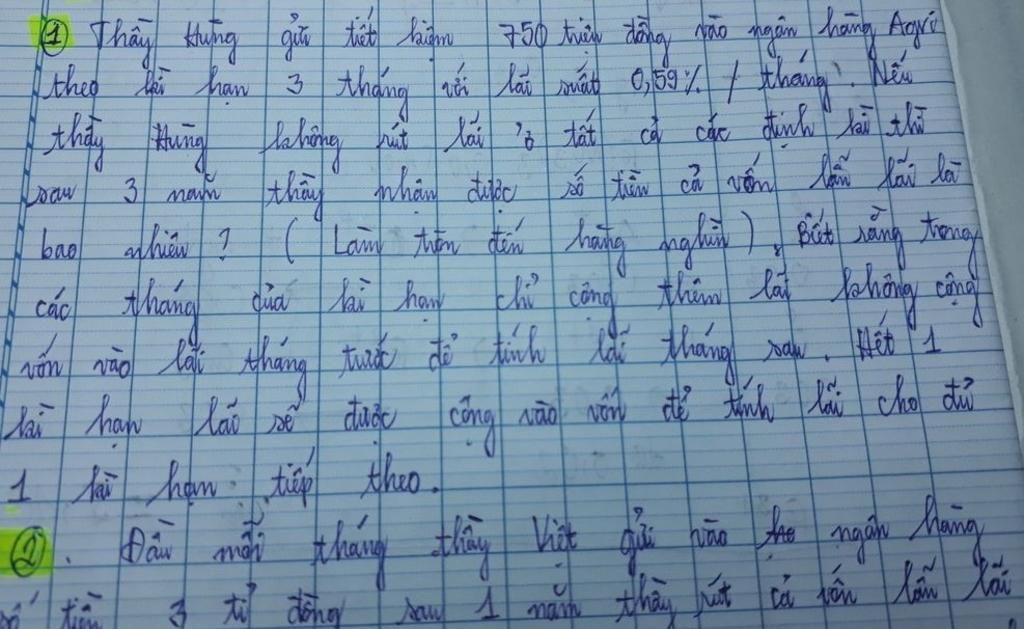 ① Thầy Hưng gửi tiết kiệm 750 triệu đồng vào ngân hàng Agri
theo kì hạn 3 tháng với lãi suất 0,59% / tháng. Nếu
thầy Hưng không rút lãi ở tất cả các định kì thì
sau 3 năm thầy nhận được số tiền cả vốn lẫn lãi là
bao nhiêu ? ( Làm tròn đến hàng nghìn ). Biết rằng trong
các tháng của kì hạn chỉ cộng thêm lãi không cộng
vốn vào lãi tháng trước để tính lãi tháng sau. Hết 1
kì hạn lãi sẽ được cộng vào vốn để tính lãi cho đủ
1 kì hạn tiếp theo.
②. Đầu mỗi tháng thầy Việt gửi vào ngân hàng
số tiền 3 tỉ đồng sau 1 năm thầy rút cả vốn lẫn lãi